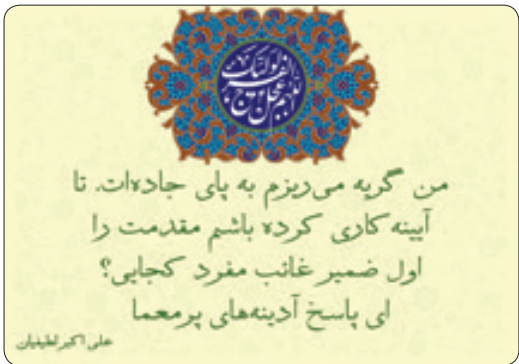 اللهم عجل لولیک الفرج
من گریه می‌ریزم به پای جاده‌ات، تا
آیینه کاری کرده باشم مقدمت را
اول ضمیر غائب مفرد کجایی؟
ای پاسخ آدینه‌های پرمعما
علی اکبر لطیفیان